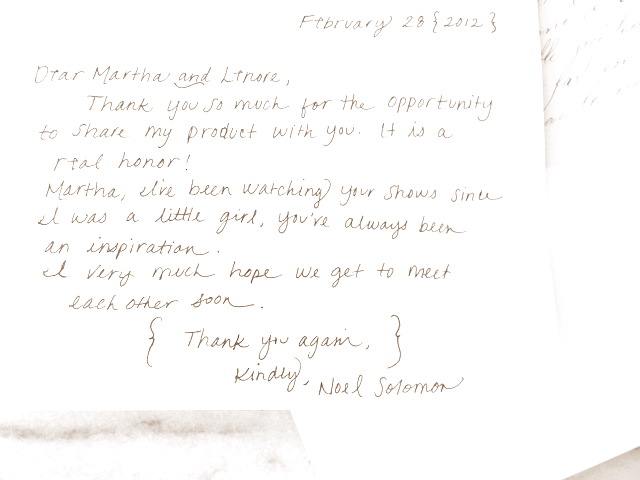 February 28 {2012}
Dear Martha and Lenore,
Thank you so much for the opportunity
to share my product with you. It is a
real honor!
Martha, I've been watching your shows since
I was a little girl, you've always been
an inspiration.
I very much hope we get to meet
each other soon.
{ Thank you again, }
Kindly, Noel Solomon